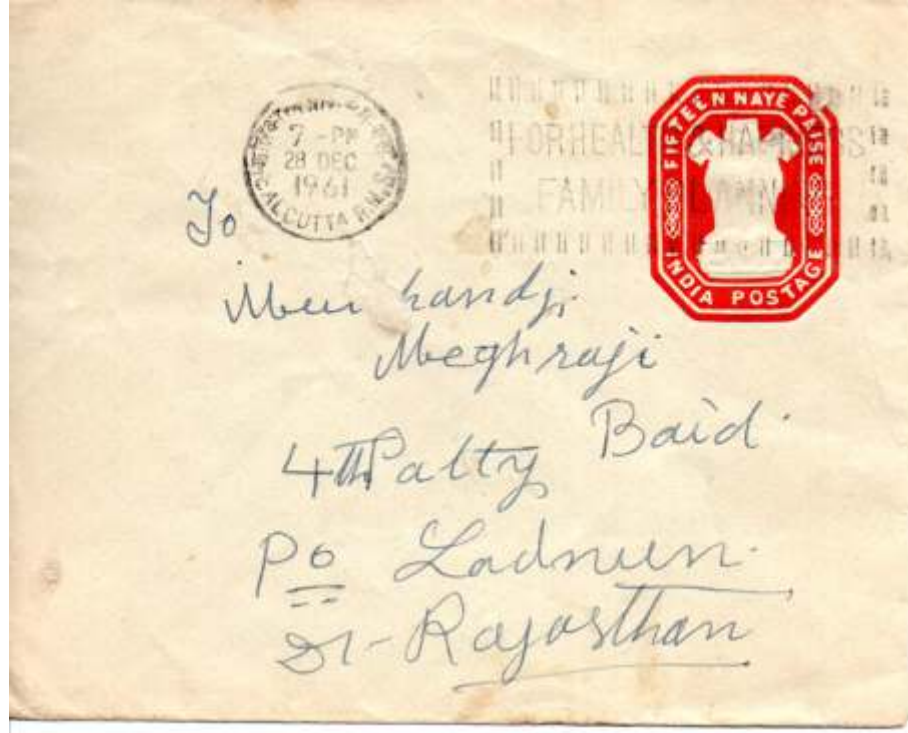 7 - PM
28 DEC
1961
CALCUTTA R.M.S.
FOR HEALTH & HAPPINESS
FAMILY PLANNING
FIFTEEN NAYE PAISE
INDIA POSTAGE
To
Meghraji
Baid.
4th Patty
Po Ladnun.
Dt - Rajasthan